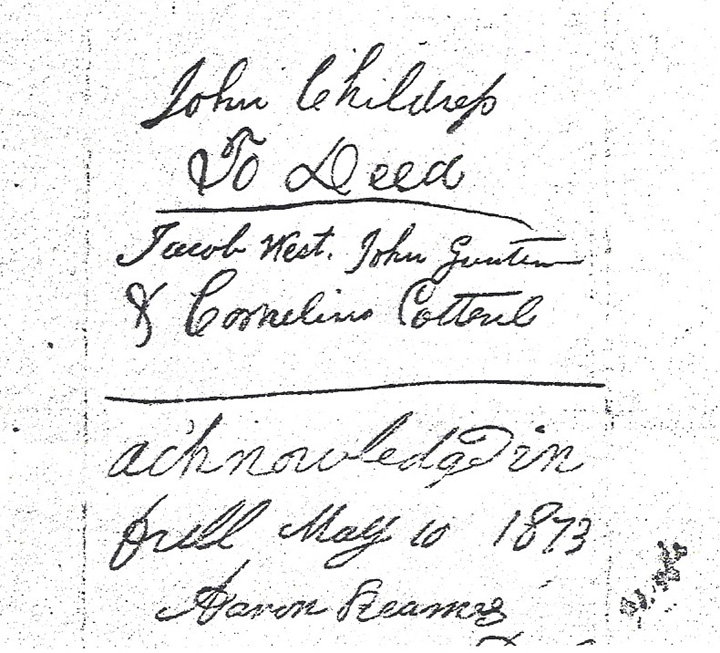 John Childress
To Deed
Jacob West. John Gunten
& Cornelius Cottrel
acknowledgd in
full May 10 1873
Aaron Reamy